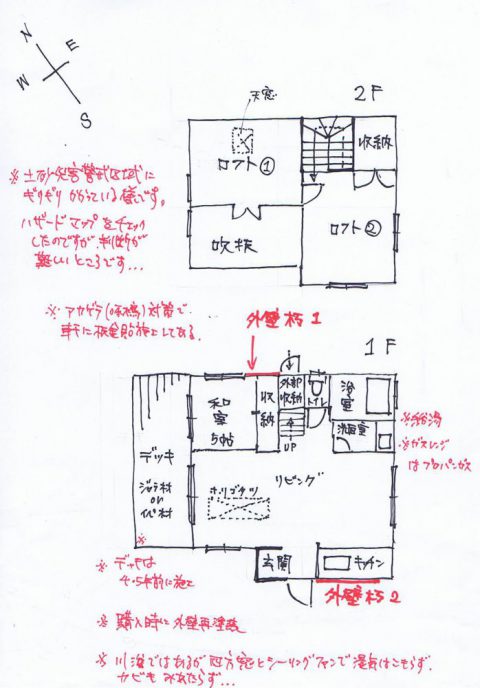 N
E
W
S
天窓
2F
ロフト①
収納
ロフト②
吹抜
※土砂災害警戒区域に
ギリギリかかっている様です。
ハザードマップをチェック
したのですが判断が
難しいところです…
※アカゲラ(啄木鳥)対策で
軒に板金貼施工してある。
外壁朽1
1F
和室
5帖
収納
外部
収納
トイレ
浴室
洗面室
UP
※給湯
※ガスレンジ
はプロパンガス
デッキ
リビング
ホリゴタツ
or
※
玄関
キッチン
※デッキは
4・5年前に施工
外壁朽2
※購入時に外壁再塗装
※川沿ではあるが四方窓とシーリングファンで湿気はこもらず、
カビもみあたらず…